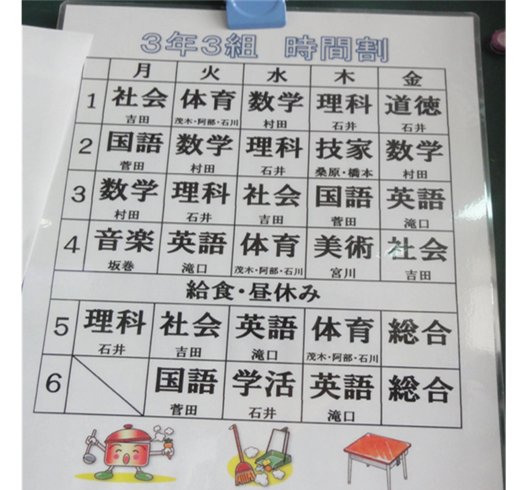 3年3組 時間割
月 火 水 木 金
1 社会 体育 数学 理科 道徳
吉田 茂木・阿部・石川 村田 石井 石井
2 国語 数学 理科 技家 数学
菅田 村田 石井 桑原・橋本 村田
3 数学 理科 社会 国語 英語
村田 石井 吉田 菅田 滝口
4 音楽 英語 体育 美術 社会
坂巻 滝口 茂木・阿部・石川 宮川 吉田
給食・昼休み
5 理科 社会 英語 体育 総合
石井 吉田 滝口 茂木・阿部・石川
6 国語 学活 英語 総合
菅田 石井 滝口